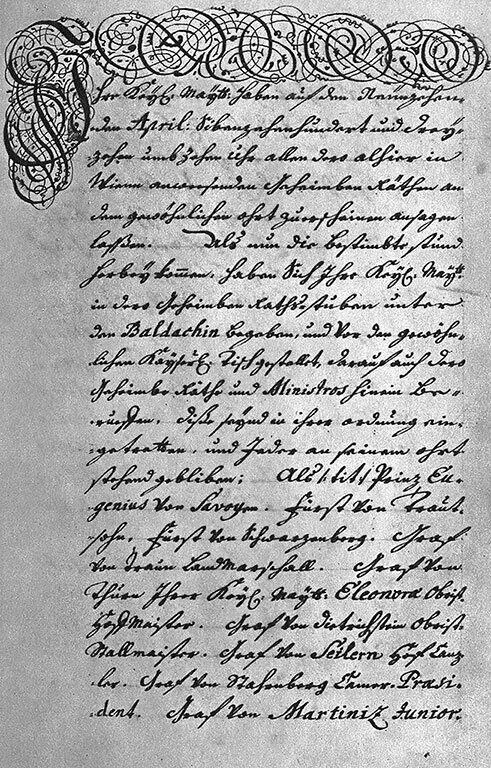 Ihre Keyl. Maytt: haben auf den Neünzehen-
den April: Sibenzehenhundert und drey-
zehen umb zehen uhr allen dero alhier in
Wienn anwesenden Geheimben Räthen an
dem gewöhnlichen ohrt zuerscheinen ansagen
lassen. Als nun die bestimbte stund
herbey kommen, haben Sich Ihre Keyl. Maytt:
in dero Geheimben Raths-stuben unter
den Baldachin begeben, und vor den gewöhn-
lichen Kayserl. Tisch gestellet, darauf auch dero
Geheimbe Räthe und Ministros hinein Be-
rueffen, dise seynd in ihrer ordnung ein-
getretten, und Jeder an seinem ohrt
stehend gebliben; Als: tit: Prinz Eu-
genius von Savoyen. Fürst von Traut-
sohn. Fürst von Schwarzenberg. Graf
von Traun LandMarschall. Graf von
Thurn Ihrer Keyl. Maytt: Eleonoræ Obrist
HoffMaister. Graf von Dietrichstein Obrist-
Stallmaister. Graf von Seilern Hoff Canz-
ler. Graf von Stahrenberg Camer-Præsi-
dent. Graf von Martiniz Junior.